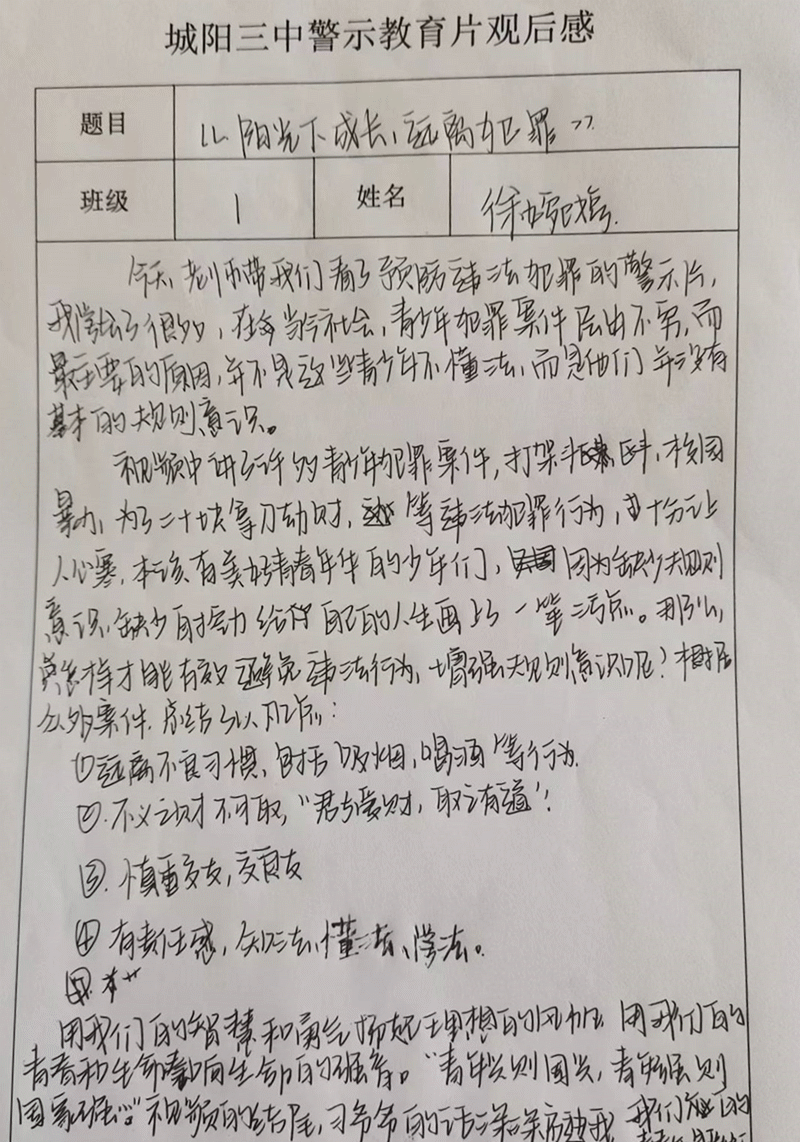 城阳三中警示教育片观后感
题目 《阳光下成长，远离犯罪》
班级 1 姓名 徐
今天，老师带我们看了预防违法犯罪的警示片，
我学会了很多，在当今社会，青少年犯罪案件层出不穷，而
最主要的原因，并不是这些青少年不懂法，而是他们并没有
基本的规则意识。
视频中讲了许多青少年犯罪案件，打架斗殴，校园
暴力，为了二十块拿刀劫财，等违法犯罪行为，十分让
人心寒，本该有美好青春年华的少年们，因为缺少规则
意识，缺少自控力给自己的人生画上一笔污点。那么，
怎样才能有效避免违法行为，增强规则意识呢？根据
众多案件，总结了以下几点：
①远离不良习惯，包括吸烟，喝酒等行为.
②.不义之财不可取，"君子爱财，取之有道"！
③.慎重交友，交良友
④有责任感，知法、懂法、学法。
用我们的智慧和勇气扬起理想的风帆 用我们的
青春和生命奏响生命的强音。"青年兴则国兴，青年强则
国家强"。视频的结尾，习爷爷的话深深 我 我们 的